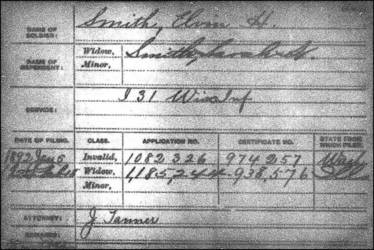 NAME OF SOLDIER: Smith, H.
NAME OF DEPENDENT: Widow, Smith,
Minor,
SERVICE: I 31 Wis Inf
DATE OF FILING. CLASS. APPLICATION NO. CERTIFICATE NO. STATE FROM WHICH FILED.
1892 Invalid, 1082,326 974257 Wash
Widow, 938,576 Ill
Minor,
ATTORNEY: J Tanner
REMARKS: